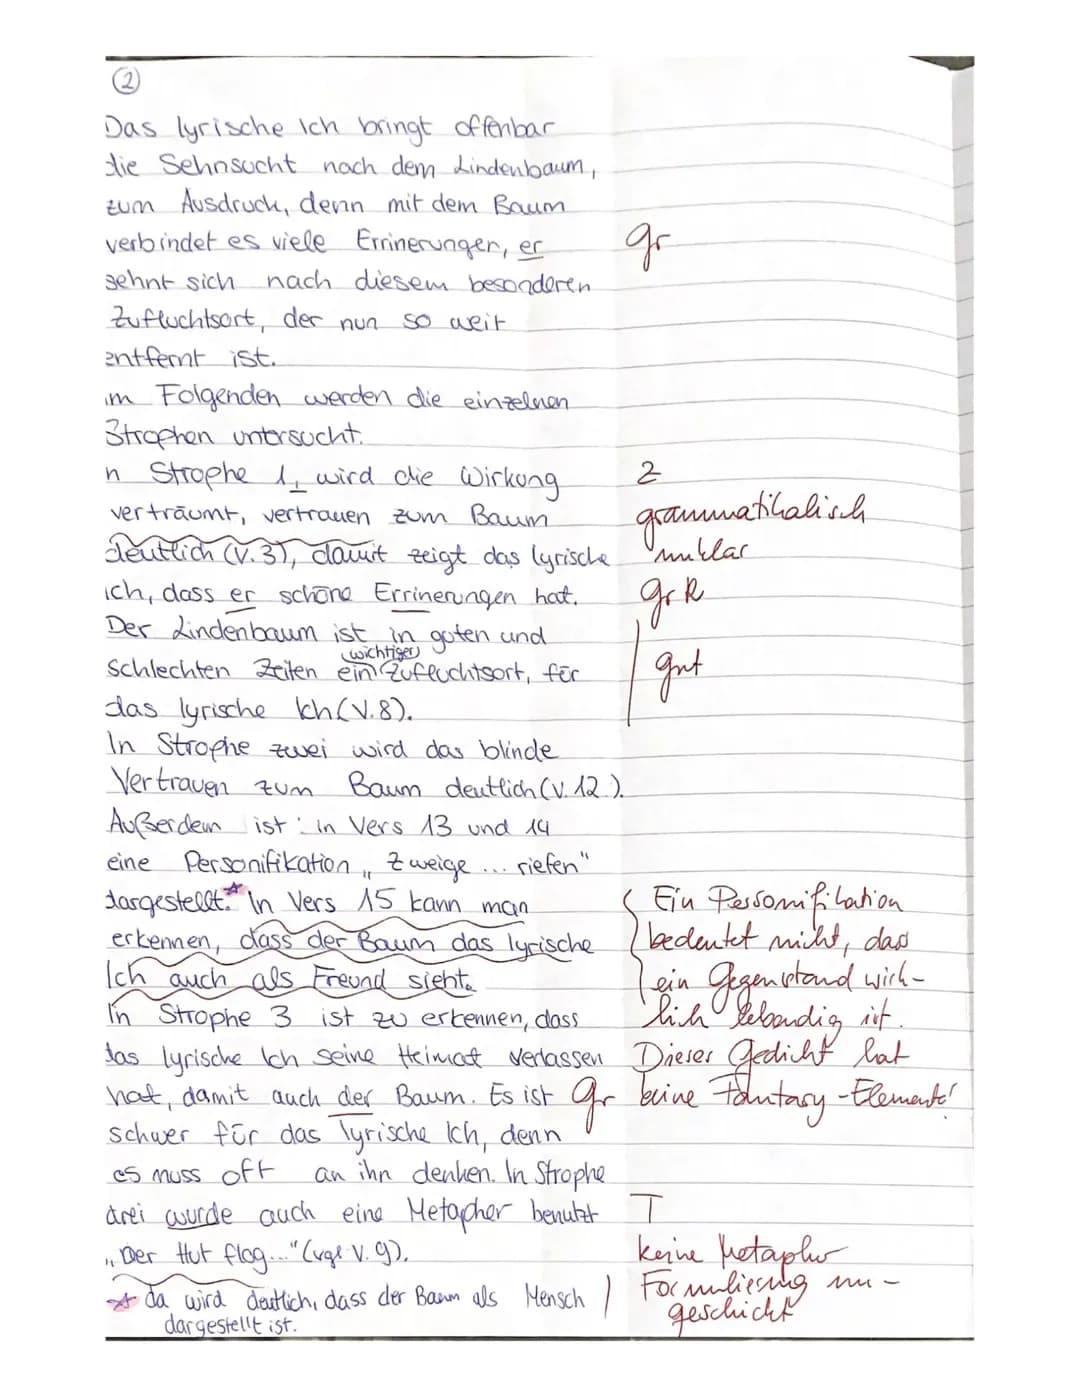 2
Das lyrische Ich bringt offenbar
die Sehnsucht nach dem Lindenbaum,
zum Ausdruck, denn mit dem Baum
verbindet es viele Errinerungen, er
gr
sehnt sich nach diesem besonderen
Zufluchtsort, der nun so weit
entfernt ist.
im Folgenden werden die einzelnen
Strophen untersucht.
n Strophe 1, wird die Wirkung
2
verträumt, vertrauen zum Baum
grammatikalisch
deutlich (V.3), damit zeigt das lyrische
unklar
ich, dass er schöne Errinerungen hat.
gr R
Der Lindenbaum ist in guten und
(wichtiger)
schlechten Zeiten ein Zufluchtsort, für
gut
das lyrische Ich (V.8).
In Strophe zwei wird das blinde
Vertrauen zum Baum deutlich (V. 12.).
Außerdem ist in Vers 13 und 14
eine Personifikation „Zweige ... riefen"
dargestellt.* In Vers 15 kann man
Ein Personifikation
erkennen, dass der Baum das lyrische
bedeutet nicht, dass
Ich auch als Freund sieht.
ein Gegenstand wirk-
In Strophe 3 ist zu erkennen, dass
lich lebendig ist.
das lyrische Ich seine Heimat verlassen
Dieses Gedicht hat
hat, damit auch der Baum. Es ist
gr
keine Fantasy-Elemente!
schwer für das lyrische Ich, denn
es muss oft an ihn denken. In Strophe
drei wurde auch eine Metapher benutzt
T
„Der Hut flog..." (vgl. V. 9).
keine Metapher
* da wird deutlich, dass der Baum als Mensch
Formulierung un-
dargestellt ist.
geschickt